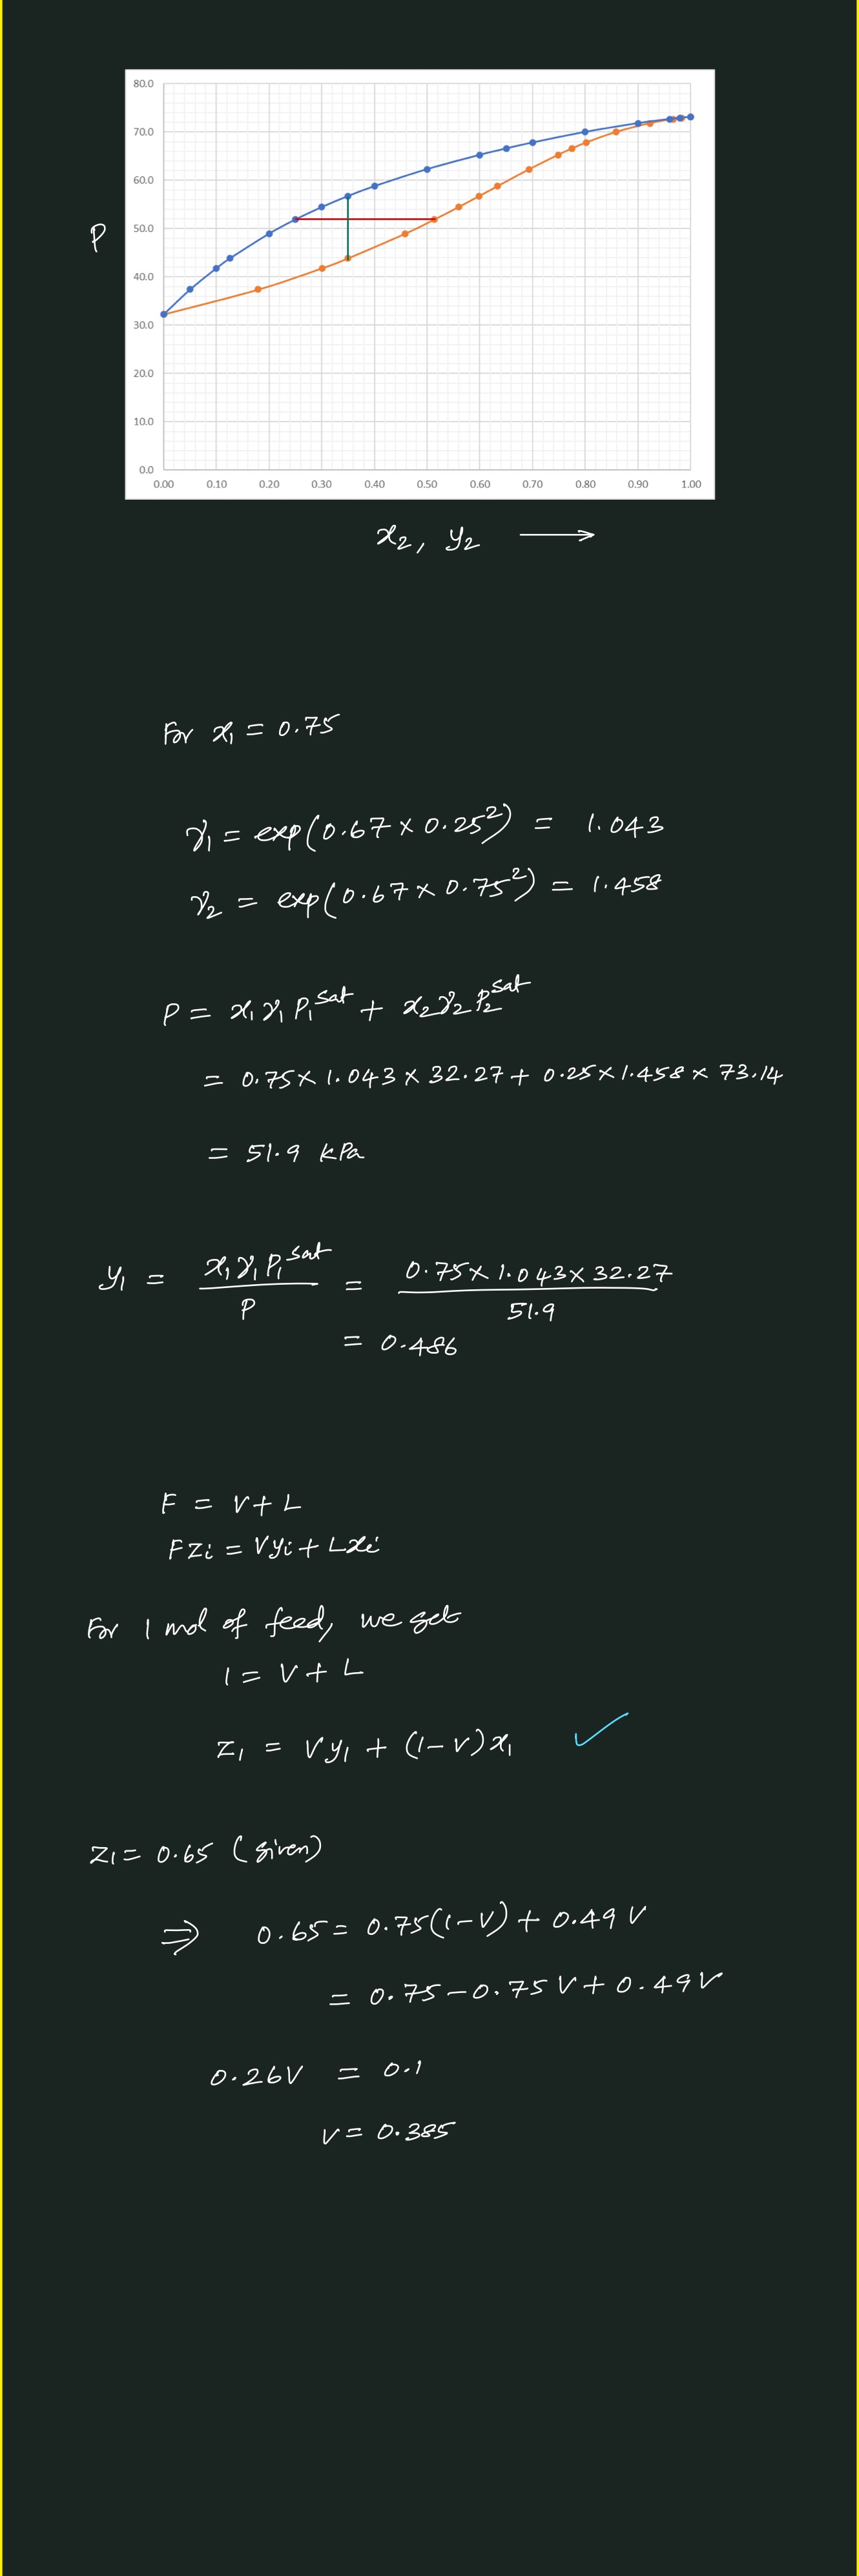 80.0
70.0
60.0
50.0
P
40.0
30.0
20.0
10.0
0.0
0.00 0.10 0.20 0.30 0.40 0.50 0.60 0.70 0.80 0.90 1.00
x₂, y₂ ⟶
For x₁ = 0.75
γ₁ = exp(0.67 × 0.25²) = 1.043
γ₂ = exp(0.67 × 0.75²) = 1.458
P = x₁ γ₁ P₁^sat + x₂ γ₂ P₂^sat
= 0.75 × 1.043 × 32.27 + 0.25 × 1.458 × 73.14
= 51.9 kPa
y₁ = x₁ γ₁ P₁^sat / P = 0.75 × 1.043 × 32.27 / 51.9
= 0.486
F = V + L
F zi = V yi + L xi
For 1 mol of feed, we get
1 = V + L
z₁ = V y₁ + (1 − V) x₁ ✓
z₁ = 0.65 (given)
⇒ 0.65 = 0.75(1−V) + 0.49 V
= 0.75 − 0.75 V + 0.49 V
0.26V = 0.1
V = 0.385